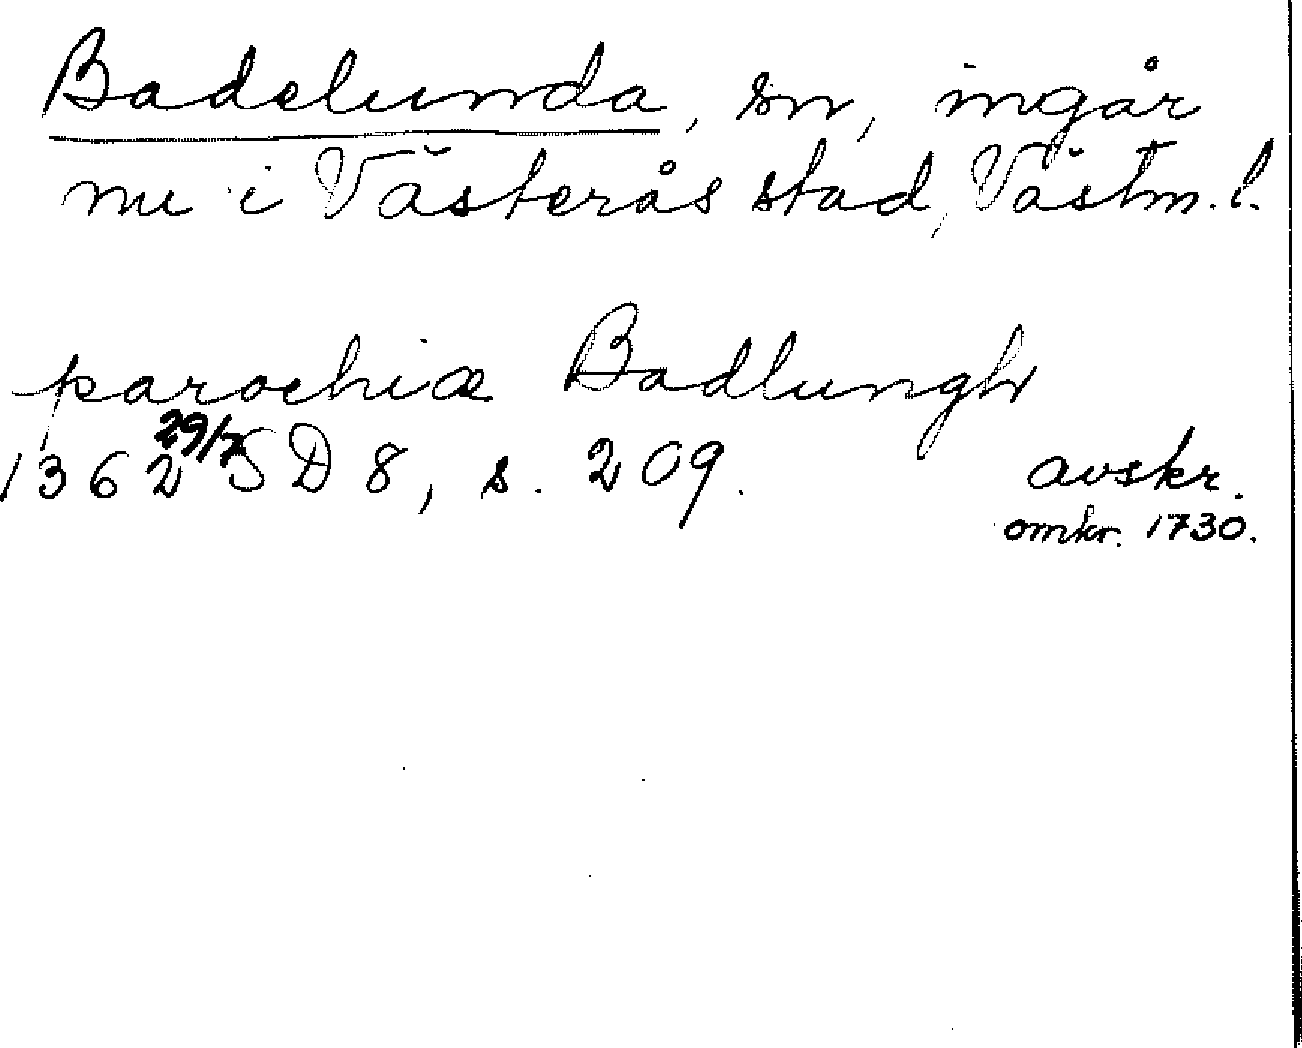 Badelunda, sn, ingår
nu i Västerås stad, Västm. l.
parochiæ Badlungh
1362 29/7 SD 8, s. 209. avskr.
omkr. 1730.